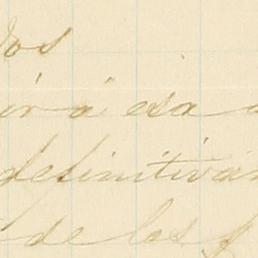 dos
irá esa a
definitivam
de los